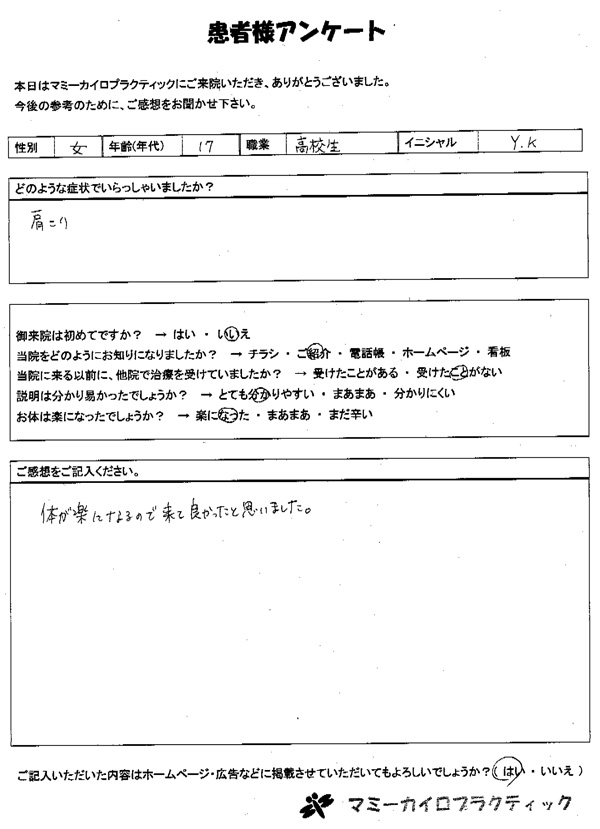 患者様アンケート
本日はマミーカイロプラクティックにご来院いただき、ありがとうございました。
今後の参考のために、ご感想をお聞かせ下さい。
性別 女 年齢(年代) 17 職業 高校生 イニシャル Y.K
どのような症状でいらっしゃいましたか?
肩こり
御来院は初めてですか? → はい ・ いいえ
当院をどのようにお知りになりましたか? → チラシ ・ ご紹介 ・ 電話帳 ・ ホームページ ・ 看板
当院に来る以前に、他院で治療を受けていましたか? → 受けたことがある ・ 受けたことがない
説明は分かり易かったでしょうか? → とても分かりやすい ・ まあまあ ・ 分かりにくい
お体は楽になったでしょうか? → 楽になった ・ まあまあ ・ まだ辛い
ご感想をご記入ください。
体が楽になるので来て良かったと思いました。
ご記入いただいた内容はホームページ・広告などに掲載させていただいてもよろしいでしょうか?( はい ・ いいえ )
マミーカイロプラクティック